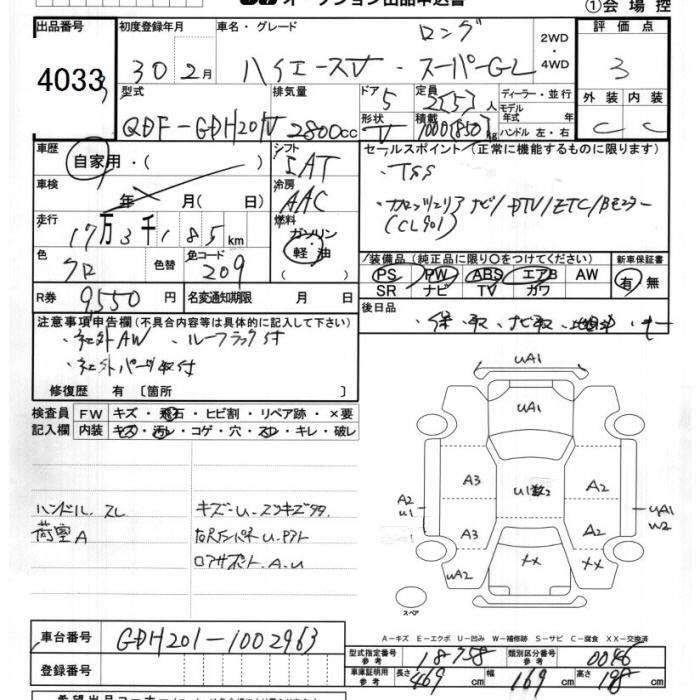 オークション出品申込書
①会場控
出品番号 初度登録年月 車名・グレード ロング 2WD・4WD 評価点
4033 30 2月 ハイエースV・スーパーGL 3
型式 排気量 ドア 5 定員 2(5)人 ディーラー・並行 外装 内装
QDF-GDH201V 2800cc 形状 V 積載 1000(850)kg モデル年式 年式 ハンドル 左・右 C C
車歴 シフト セールスポイント (正常に機能するものに限ります)
自家用・( ) IAT ・TSS
車検 冷房 ・カロッツェリアナビ/DTV/ETC/Bモニター
年 月( 日) AAC (CL901)
走行 燃料
17万3千185km ガソリン 軽油
色 色替 色コード 装備品 (純正品に限り〇をつけてください) 新車保証書
クロ 209 PS PW ABS エアB AW 有 無
SR ナビ TV カワ
R券 9,550円 名変通知期限 月 日 後日品
注意事項申告欄 (不具合内容等は具体的に記入して下さい) ・保・取・ナビ取
・社外AW ・ルーフラック付
・社外パーツ取付
修復歴 有 〔箇所 〕
検査員 FW キズ・飛石・ヒビ割・リペア跡・×要
記入欄 内装 キズ・汚れ・コゲ・穴・スレ・キレ・破レ
UA1
UA1
A3 U1数2 A2
A2 U1 UA1 W2
A3 A2
UA2 ×× ××
スペア
ハンドル.スレ キズ・U・
荷室A
ロアサポート.A.U
A-キズ E-エクボ U-凹み W-補修跡 S-サビ C-腐食 XX-交換済
車台番号 GDH201-1002963
型式指定番号 参考 18758 類別区分番号 参考 0046
登録番号 車庫証明用 参考 長さ 469cm 幅 169cm 高さ 198cm
希望出品コーナー